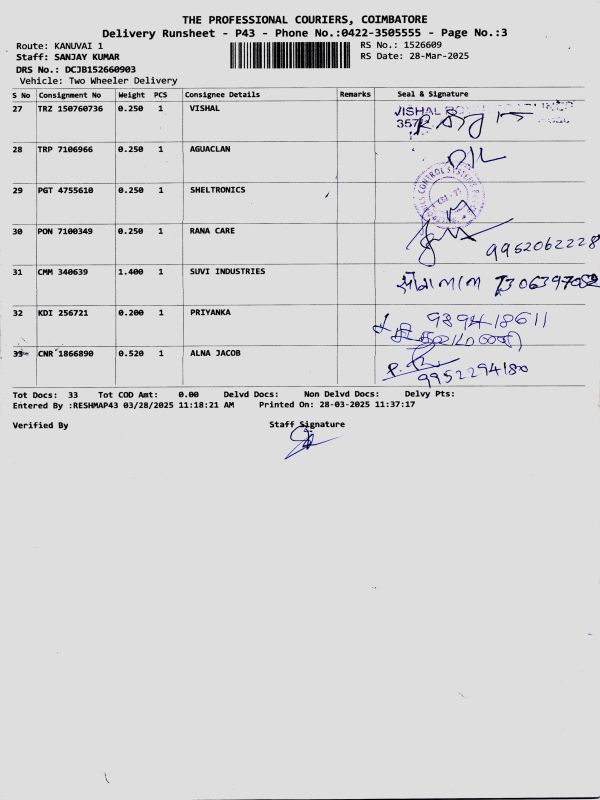 THE PROFESSIONAL COURIERS, COIMBATORE
Delivery Runsheet - P43 - Phone No.:0422-3505555 - Page No.:3
Route: KANUVAI 1 RS No.: 1526609
Staff: SANJAY KUMAR RS Date: 28-Mar-2025
DRS No.: DCJB152660903
Vehicle: Two Wheeler Delivery
S No Consignment No Weight PCS Consignee Details Remarks Seal & Signature
27 TRZ 150760736 0.250 1 VISHAL VISHAL
28 TRP 7106966 0.250 1 AGUACLAN
29 PGT 4755610 0.250 1 SHELTRONICS CONTROL SYSTEMS
30 PON 7100349 0.250 1 RANA CARE 9952062228
31 CMM 340639 1.400 1 SUVI INDUSTRIES
32 KDI 256721 0.200 1 PRIYANKA 9894418611
33 CNR 1866890 0.520 1 ALNA JACOB 9952294180
Tot Docs: 33 Tot COD Amt: 0.00 Delvd Docs: Non Delvd Docs: Delvy Pts:
Entered By :RESHMAP43 03/28/2025 11:18:21 AM Printed On: 28-03-2025 11:37:17
Verified By Staff Signature